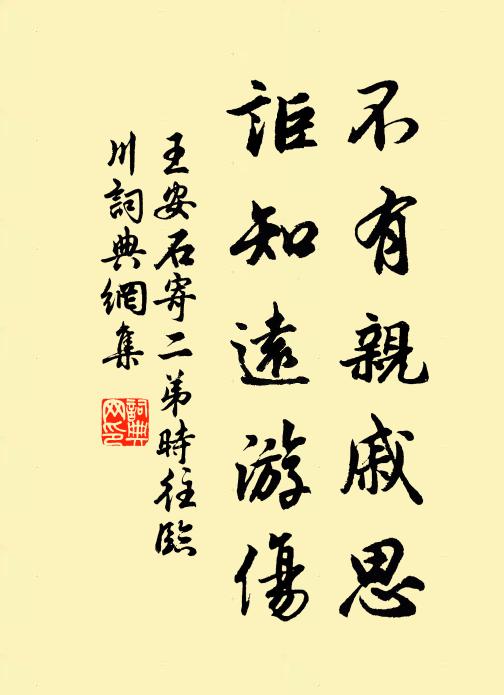 不有親戚思
詎知遠游傷
王安石寄二弟時往臨
川詞典網集
詞典網印